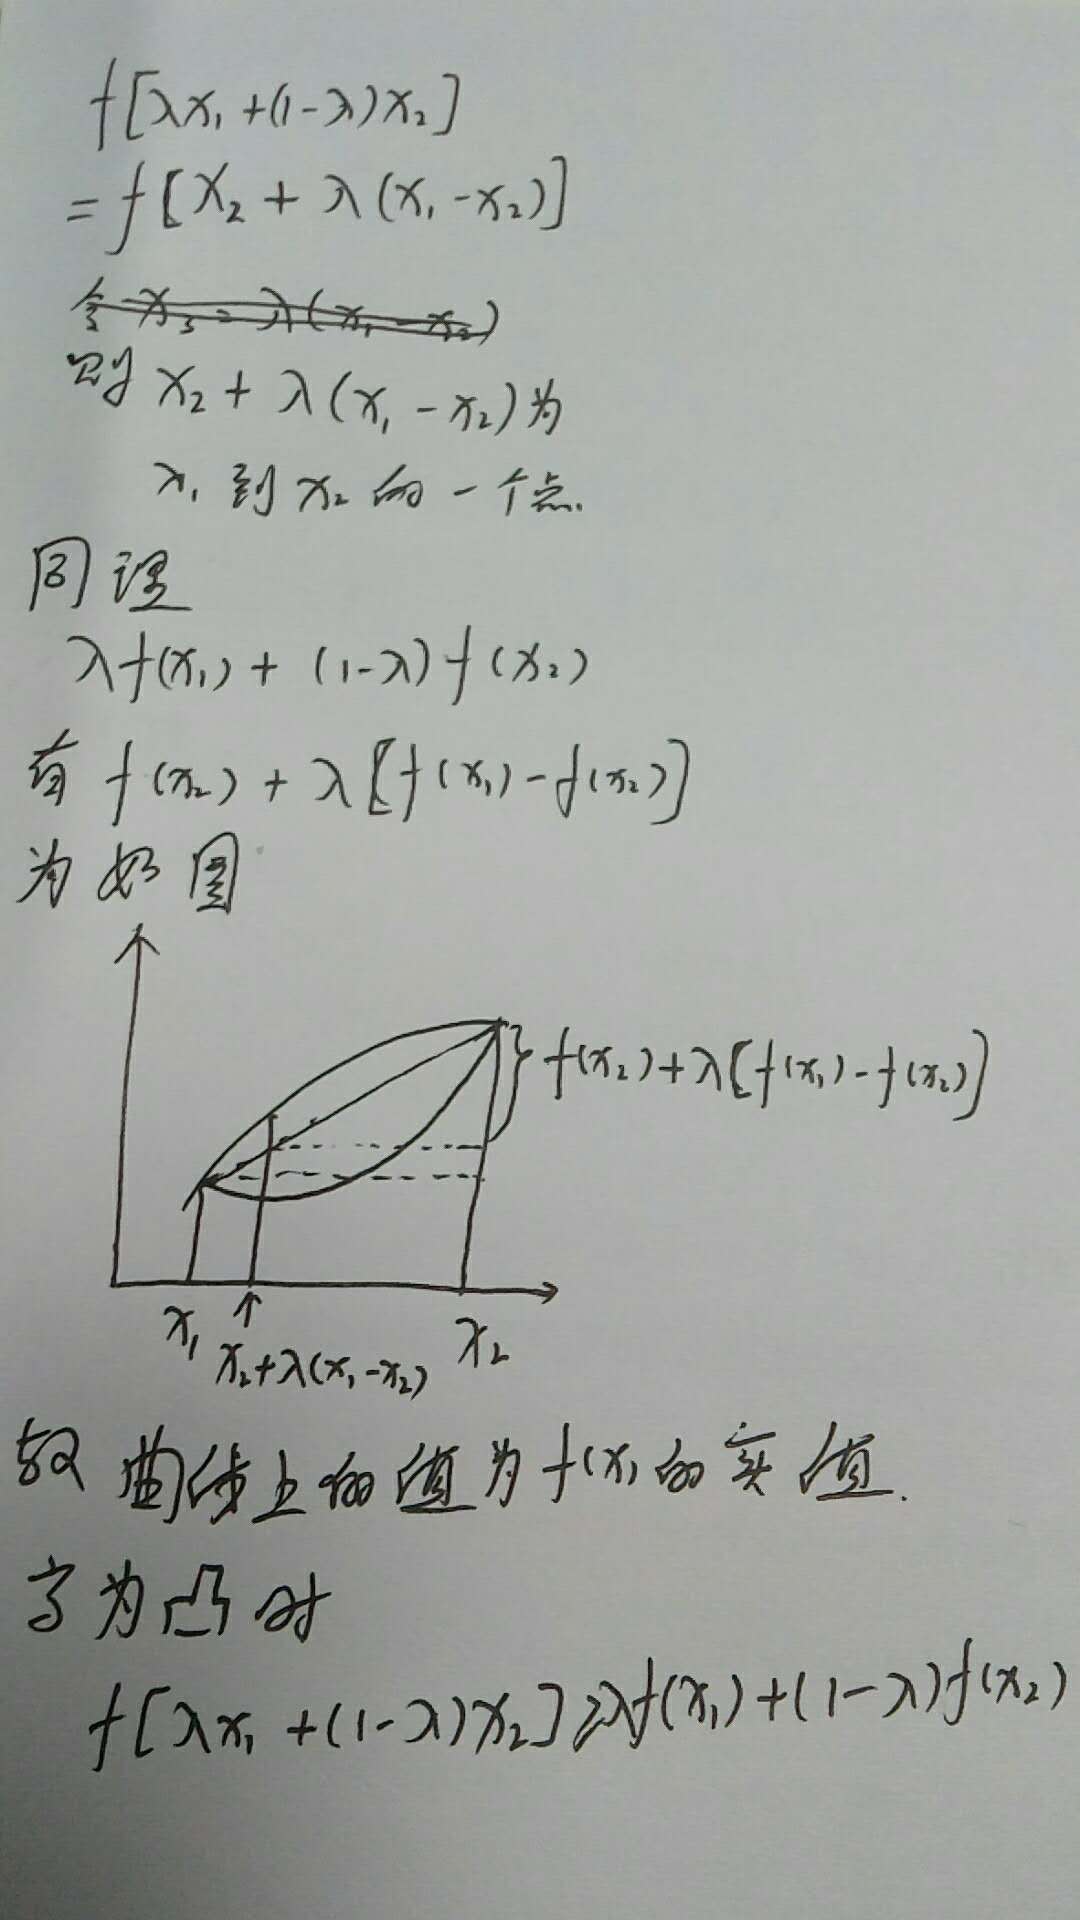 f[λx₁+(1-λ)x₂]
=f[x₂+λ(x₁-x₂)]
令x₃=λ(x₁-x₂)
则x₂+λ(x₁-x₂)为
x₁到x₂的一个点.
同理
λf(x₁)+(1-λ)f(x₂)
有f(x₂)+λ[f(x₁)-f(x₂)]
为如图
f(x₂)+λ[f(x₁)-f(x₂)]
x₁
x₂
x₂+λ(x₁-x₂)
故曲线上的值为f(x)的实值.
为凸时
f[λx₁+(1-λ)x₂]≥λf(x₁)+(1-λ)f(x₂)